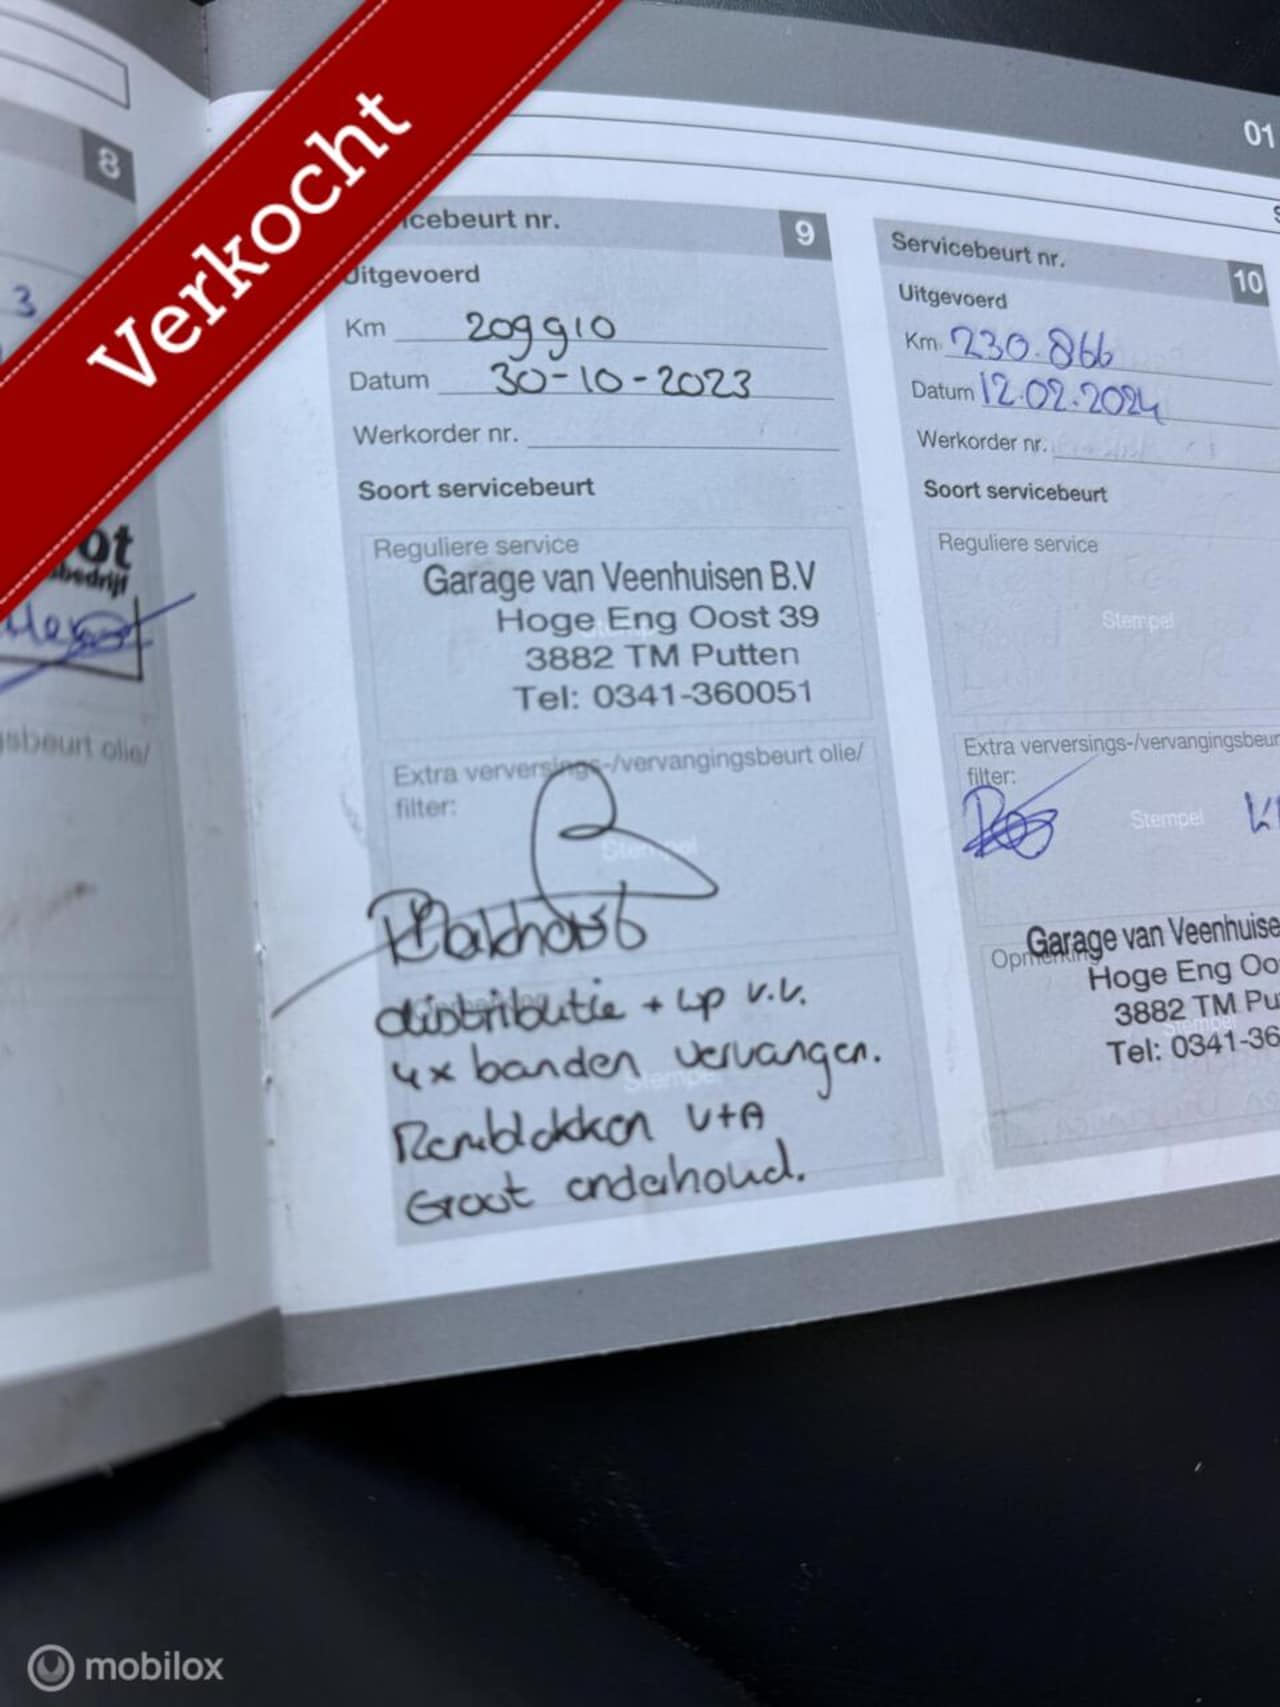 Verkocht
01
8
3
ot
bedrijf
sbeurt olie/
cebeurt nr. 9
Uitgevoerd
Km 209910
Datum 30-10-2023
Werkorder nr.
Soort servicebeurt
Reguliere service
Garage van Veenhuisen B.V
Hoge Eng Oost 39
3882 TM Putten
Tel: 0341-360051
Extra verversings-/vervangingsbeurt olie/
filter:
Stempel
distributie + wp v.v.
4x banden vervangen.
Remblokken V+A
Groot onderhoud.
Stempel
Servicebeurt nr. 10
Uitgevoerd
Km 230.866
Datum 12.02.2024
Werkorder nr.
Soort servicebeurt
Reguliere service
Stempel
Extra verversings-/vervangingsbeur
filter:
Stempel
Garage van Veenhuise
Opmerking
Hoge Eng Oo
3882 TM Pu
Stempel
Tel: 0341-36
mobilox